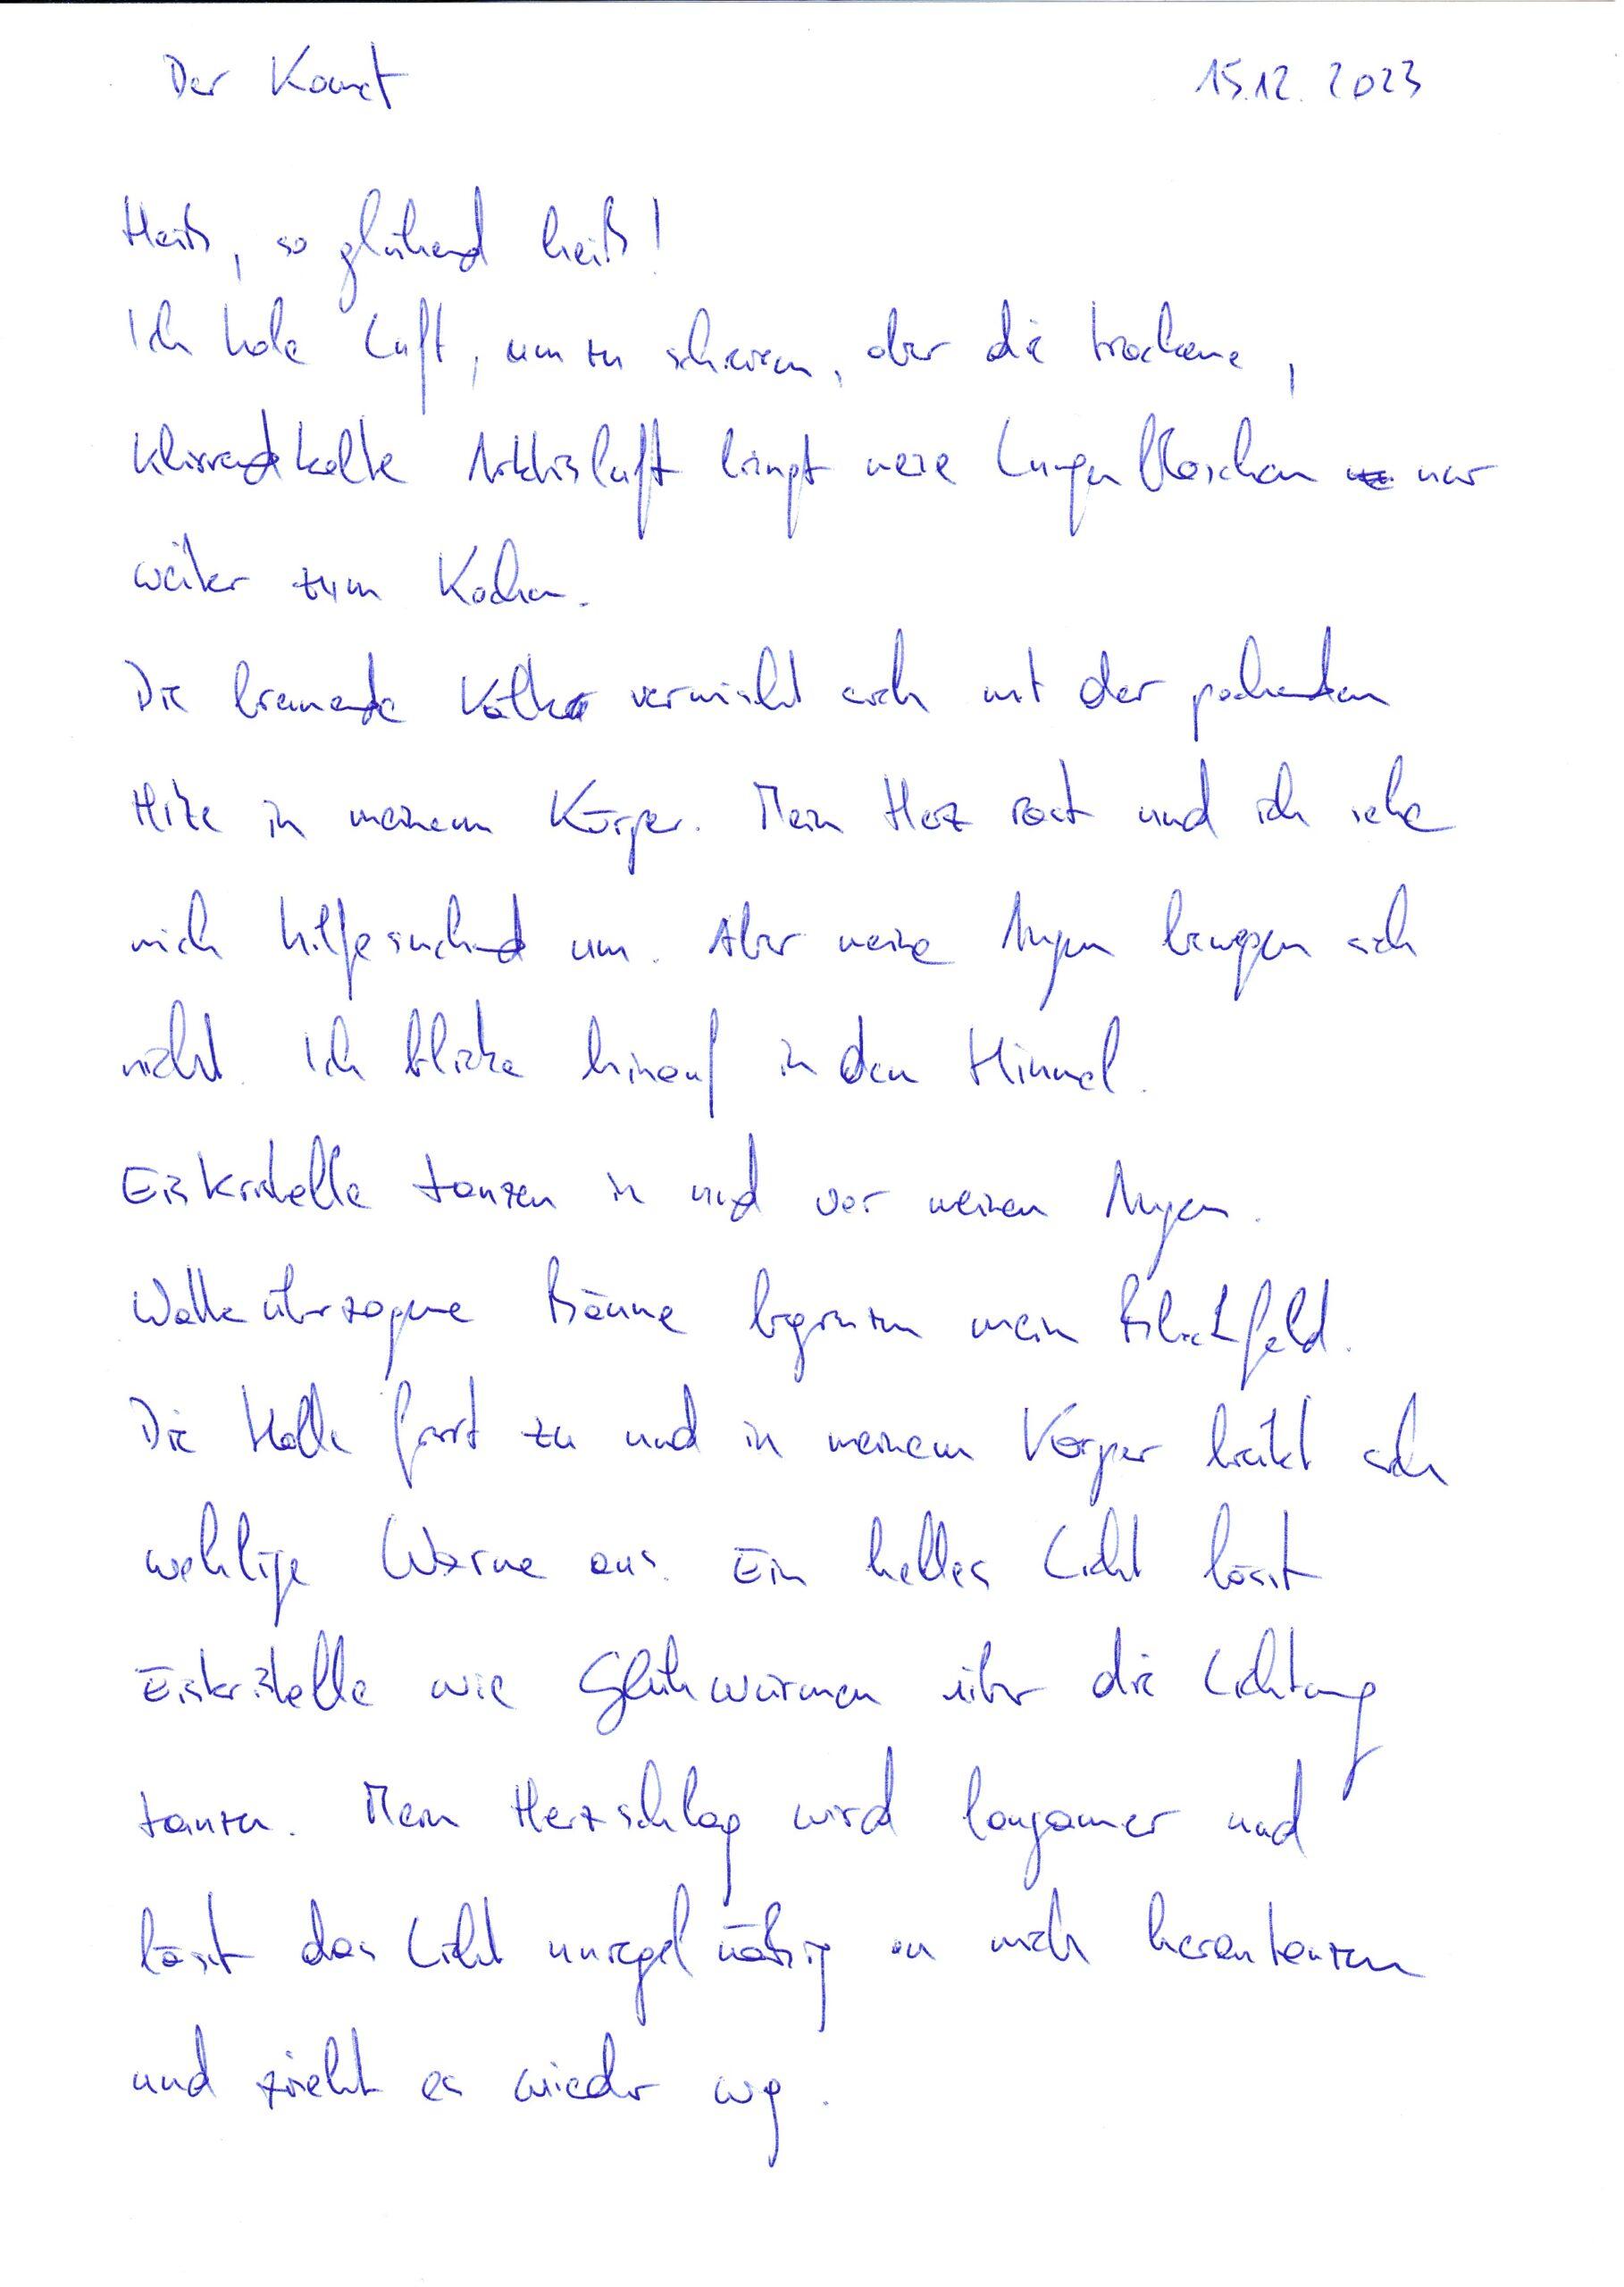 Der Komet 15.12.2023
Heiß, so glühend heiß!
Ich hole Luft, um zu schreien, aber die trockene,
klirrendkalte Arktisluft bringt meine Lungenbläschen nur
weiter zum Kochen.
Die brennende Kälte vermischt sich mit der pochenden
Hitze in meinem Körper. Mein Herz rast und ich sehe
mich hilfesuchend um. Aber meine Augen bewegen sich
nicht. Ich blicke hinauf in den Himmel.
Eiskristalle tanzen in und vor meinen Augen.
Watteüberzogene Bäume begrenzen mein Blickfeld.
Die Kälte friert zu und in meinem Körper breitet sich
wohlige Wärme aus. Ein helles Licht lässt
Eiskristalle wie Glühwürmen über die Lichtung
tanzen. Mein Herzschlag wird langsamer und
lässt das Licht unregelmäßig an mich herantanzen
und zieht es wieder weg.